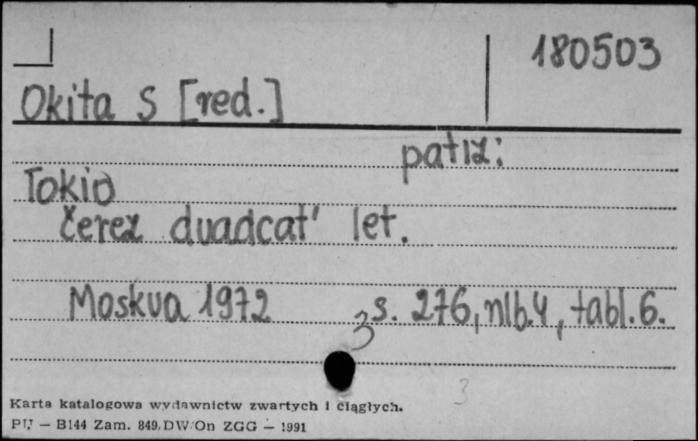 180503
Okita S [red.]
patrz:
Tokio
čerez dvadcat' let.
Moskva 1972 s. 276, nlb. 4, tabl. 6.
3
3
Karta katalogowa wydawnictw zwartych i ciągłych.
PU — B144 Zam. 849/DW/On ZGG — 1991